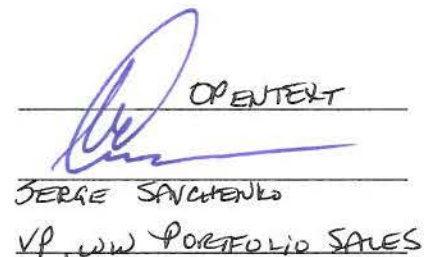 OPENTEXT
SERGE SAVCHENKO
VP, WW PORTFOLIO SALES